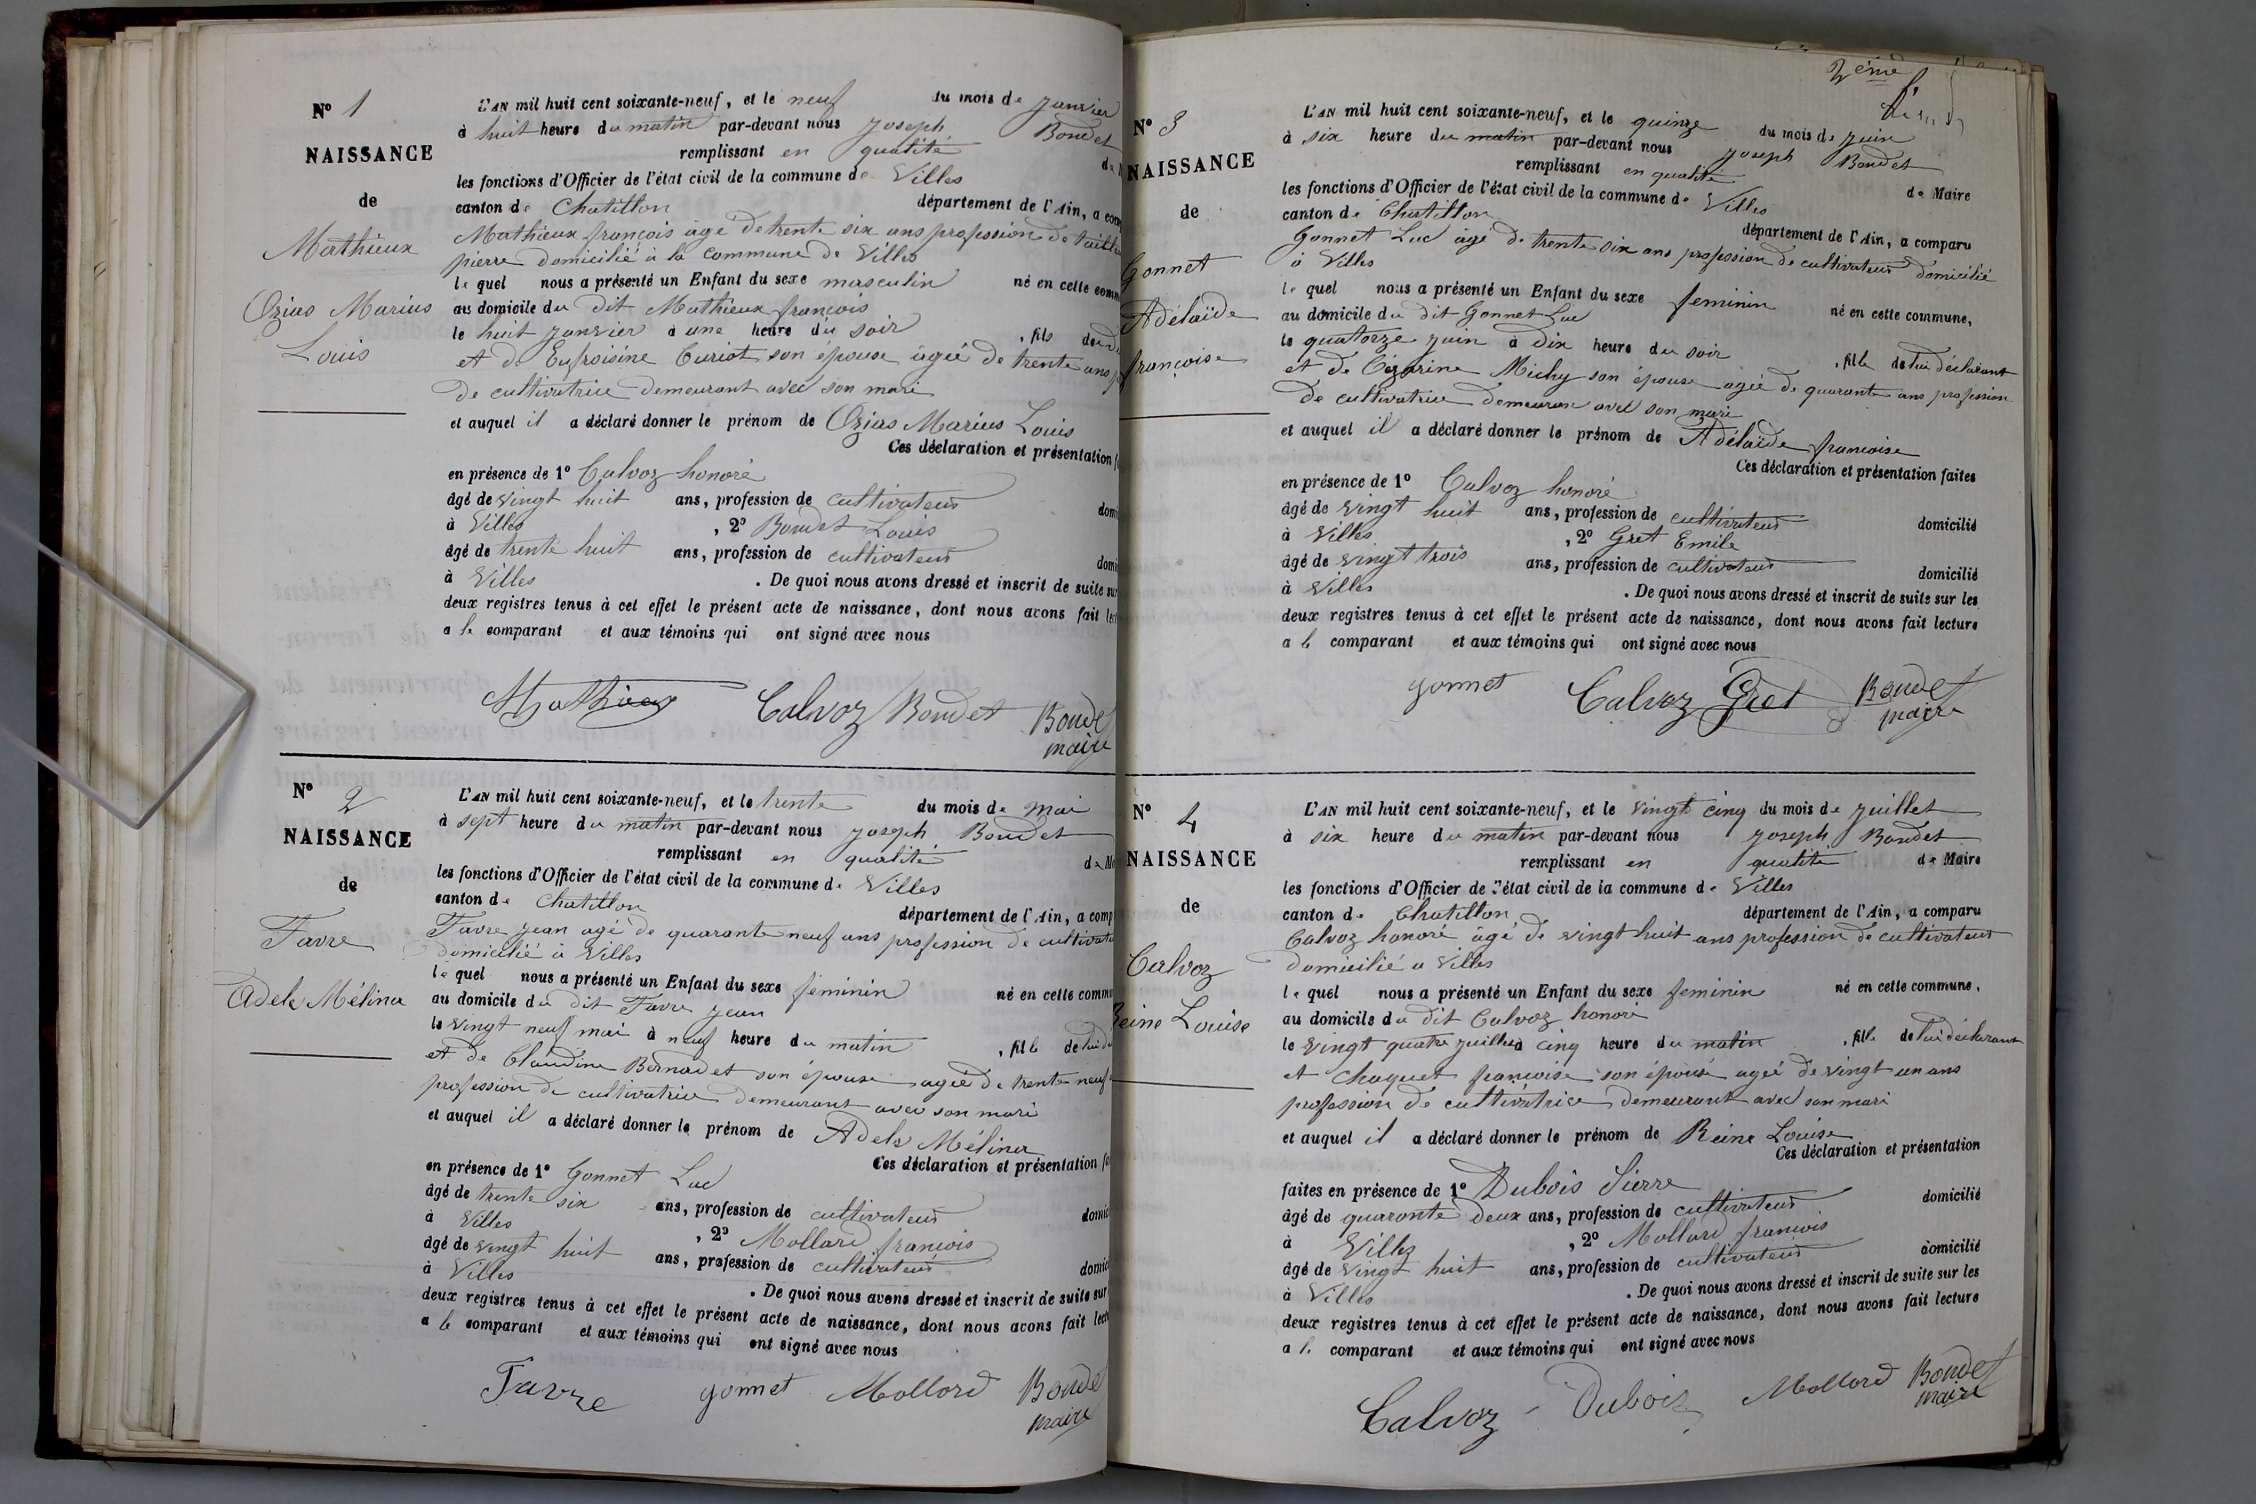 N° 1
NAISSANCE
de
Mathieux
Ozias Marius
Louis
L'AN mil huit cent soixante-neuf, et le neuf du mois de janvier
à huit heure du matin par-devant nous Joseph Boudet
remplissant en qualité de
les fonctions d'Officier de l'état civil de la commune de Villes
canton de Chatillon département de l'Ain, a com
Mathieux françois âgé de trente six ans profession de taille
pierre domicilié à la commune de Villes
lequel nous a présenté un Enfant du sexe masculin né en cette comm
au domicile du dit Mathieux françois
le huit janvier à une heure du soir , fils de
et de Eufroisine Curiot son épouse âgée de trente ans
de cultivatrice demeurant avec son mari
et auquel il a déclaré donner le prénom de Ozias Marius Louis
Ces déclaration et présentation f
en présence de 1° Calvoz honoré
âgé de vingt huit ans, profession de cultivateur dom
à Villes , 2° Boudet Louis
âgé de trente huit ans, profession de cultivateur domi
à Villes . De quoi nous avons dressé et inscrit de suite sur
deux registres tenus à cet effet le présent acte de naissance, dont nous avons fait lec
a le comparant et aux témoins qui ont signé avec nous
Mathieux Calvoz Boudet Boudet
maire
N° 2
NAISSANCE
de
Favre
Adele Mélina
L'AN mil huit cent soixante-neuf, et le trente du mois de mai
à sept heure du matin par-devant nous joseph Boudet
remplissant en qualité de Ma
les fonctions d'Officier de l'état civil de la commune de Villes
canton de Chatillon département de l'Ain, a comp
Favre jean agé de quarante neuf ans profession de cultivate
domicilié à Villes
lequel nous a présenté un Enfant du sexe feminin né en cette commu
au domicile du dit Favre jean
le vingt neuf mai à neuf heure du matin , fille de lui d
et de Claudine Bernadet son épouse agée de trente neuf
profession de cultivatrice demeurant avec son mari
et auquel il a déclaré donner le prénom de Adele Mélina
Ces déclaration et présentation fa
en présence de 1° Gonnet Luc
âgé de trente six ans, profession de cultivateur domic
à Villes , 2° Mollard françois
âgé de vingt huit ans, profession de cultivateur domic
à Villes . De quoi nous avons dressé et inscrit de suite sur
deux registres tenus à cet effet le présent acte de naissance, dont nous avons fait lect
a le comparant et aux témoins qui ont signé avec nous
Favre gonnet Mollard Boudet
maire
2ème
N° 3
NAISSANCE
de
Gonnet
Adélaïde
françoise
L'AN mil huit cent soixante-neuf, et le quinze du mois de juin
à six heure du matin par-devant nous joseph Boudet
remplissant en qualité de Maire
les fonctions d'Officier de l'état civil de la commune de Villes
canton de Chatillon département de l'Ain, a comparu
Gonnet Luc âgé de trente six ans profession de cultivateur domicilié
à Villes
lequel nous a présenté un Enfant du sexe feminin né en cette commune,
au domicile du dit Gonnet Luc
le quatorze juin à dix heure du soir , fille de lui déclarant
et de Cézarine Michy son épouse agée de quarante ans profession
de cultivatrice demeuran avec son mari
et auquel il a déclaré donner le prénom de Adélaïde françoise
Ces déclaration et présentation faites
en présence de 1° Calvoz honoré
âgé de vingt huit ans, profession de cultivateur domicilié
à Villes , 2° Gret Emile
âgé de vingt trois ans, profession de cultivateur domicilié
à Villes . De quoi nous avons dressé et inscrit de suite sur les
deux registres tenus à cet effet le présent acte de naissance, dont nous avons fait lecture
a le comparant et aux témoins qui ont signé avec nous
gonnet Calvoz Gret Boudet
maire
N° 4
NAISSANCE
de
Calvoz
Reine Louise
L'AN mil huit cent soixante-neuf, et le vingt cinq du mois de juillet
à six heure du matin par-devant nous joseph Boudet
remplissant en qualité de Maire
les fonctions d'Officier de l'état civil de la commune de Villes
canton de Chatillon département de l'Ain, a comparu
Calvoz honoré âgé de vingt huit ans profession de cultivateur
domicilié a Villes
lequel nous a présenté un Enfant du sexe feminin né en cette commune,
au domicile du dit Calvoz honoré
le vingt quatre juillet à cinq heure du matin , fille de lui déclarant
et Chaquet françoise son épouse agée de vingt un ans
profession de cultivatrice demeurant avec son mari
et auquel il a déclaré donner le prénom de Reine Louise
Ces déclaration et présentation
faites en présence de 1° Dubois Pierre
âgé de quarante deux ans, profession de cultivateur domicilié
à Villes , 2° Mollard françois
âgé de vingt huit ans, profession de cultivateur domicilié
à Villes . De quoi nous avons dressé et inscrit de suite sur les
deux registres tenus à cet effet le présent acte de naissance, dont nous avons fait lecture
a le comparant et aux témoins qui ont signé avec nous
Calvoz Dubois Mollard Boudet
maire